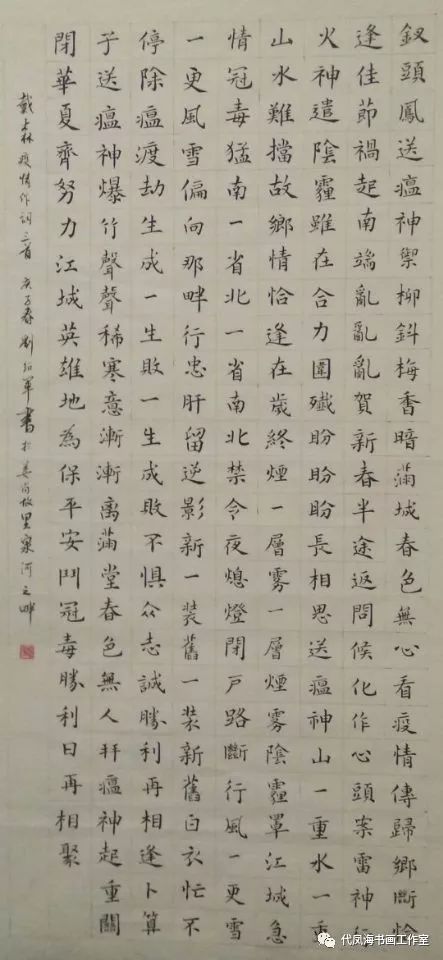 釵頭鳳送瘟神禦柳斜梅香暗滿城春色無心看疫情傳歸鄉斷恰
逢佳節禍起南端亂亂亂賀新春半途返問候化作心頭案雷神行
火神遣陰霾雖在合力圍殲盼盼盼長相思送瘟神山一重水一重
山水難擋故鄉情恰逢在歲終煙一層霧一層煙霧陰霾罩江城急
情冠毒猛南一省北一省南北禁令夜熄燈閉戶路斷行風一更雪
一更風雪偏向那畔行忠肝留逆影新一裝舊一裝新舊白衣忙不
停除瘟渡劫生成一生敗一生成敗不懼眾志誠勝利再相逢卜算
子送瘟神爆竹聲聲稀寒意漸漸離滿堂春色無人拜瘟神起重關
閉華夏齊努力江城英雄地為保平安鬥冠毒勝利日再相聚
戴 林疫情作詞三首 庚子春劉紹軍書於 故里 河之畔
代凤海书画工作室